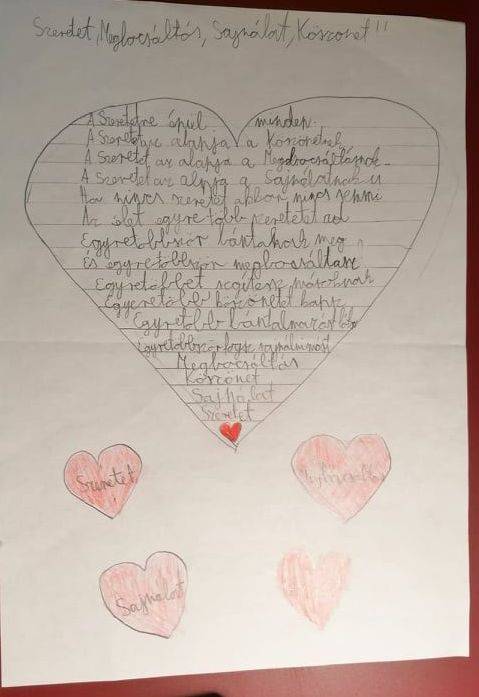 Szeretet, Megbocsáltás, Sajnálat, Köszönet!!
A Szeretetre épül minden.
A Szeretet alapja a Köszönetnek
A Szeretet az alapja a Megbocsáltásnak
A Szeretet az alapja a Sajnálatnak is
Ha nincs szeretet akkor nincs semmi
Az élet egyre több szeretetet ad
Egyretöbbször bántanak meg
És egyretöbbször megbocsáltasz
Egyretöbbet segítesz másoknak
Egyretöbb köszönetet kapsz
Egyretöbb bántalmazást
Egyretöbbször fogsz sajnálni mást
Megbocsáltás
Köszönet
Sajnálat
Szeretet
Szeretet
Sajnálat